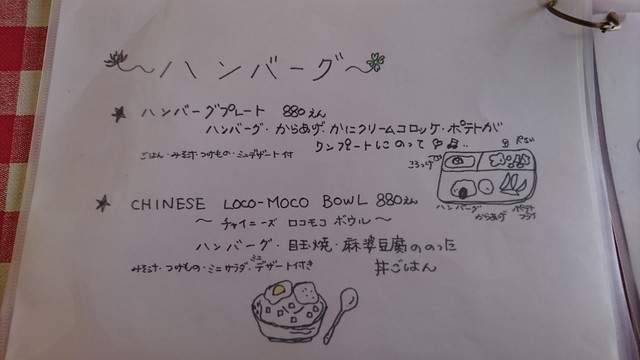 ～ハンバーグ～
★ ハンバーグプレート 880えん
ハンバーグ・からあげ・かにクリームコロッケ・ポテトが
ワンプレートにのって♪♫..
ごはん・みそ汁・つけもの・ミニデザート付
ハンバーグ
からあげ
ポテト
フライ
★ CHINESE LOCO-MOCO BOWL 880えん
～ チャイニーズ ロコモコ ボウル ～
ハンバーグ・目玉焼・麻婆豆腐ののった
丼ごはん
みそ汁・つけもの・ミニサラダ・ミニデザート付き